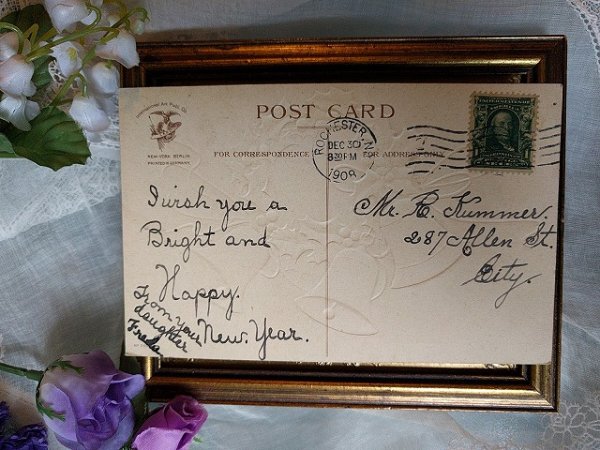 POST CARD
International Art Publ. Co.
NEW-YORK BERLIN
PRINTED IN GERMANY.
FOR CORRESPONDENCE
FOR ADDRESS ONLY
ROCHESTER, N.
DEC 30
8 30 PM
1908
I wish you a
Bright and
Happy.
New. Year.
From your
daughter
Freda
Mr. C. Kummer.
287 Allen St.
City.